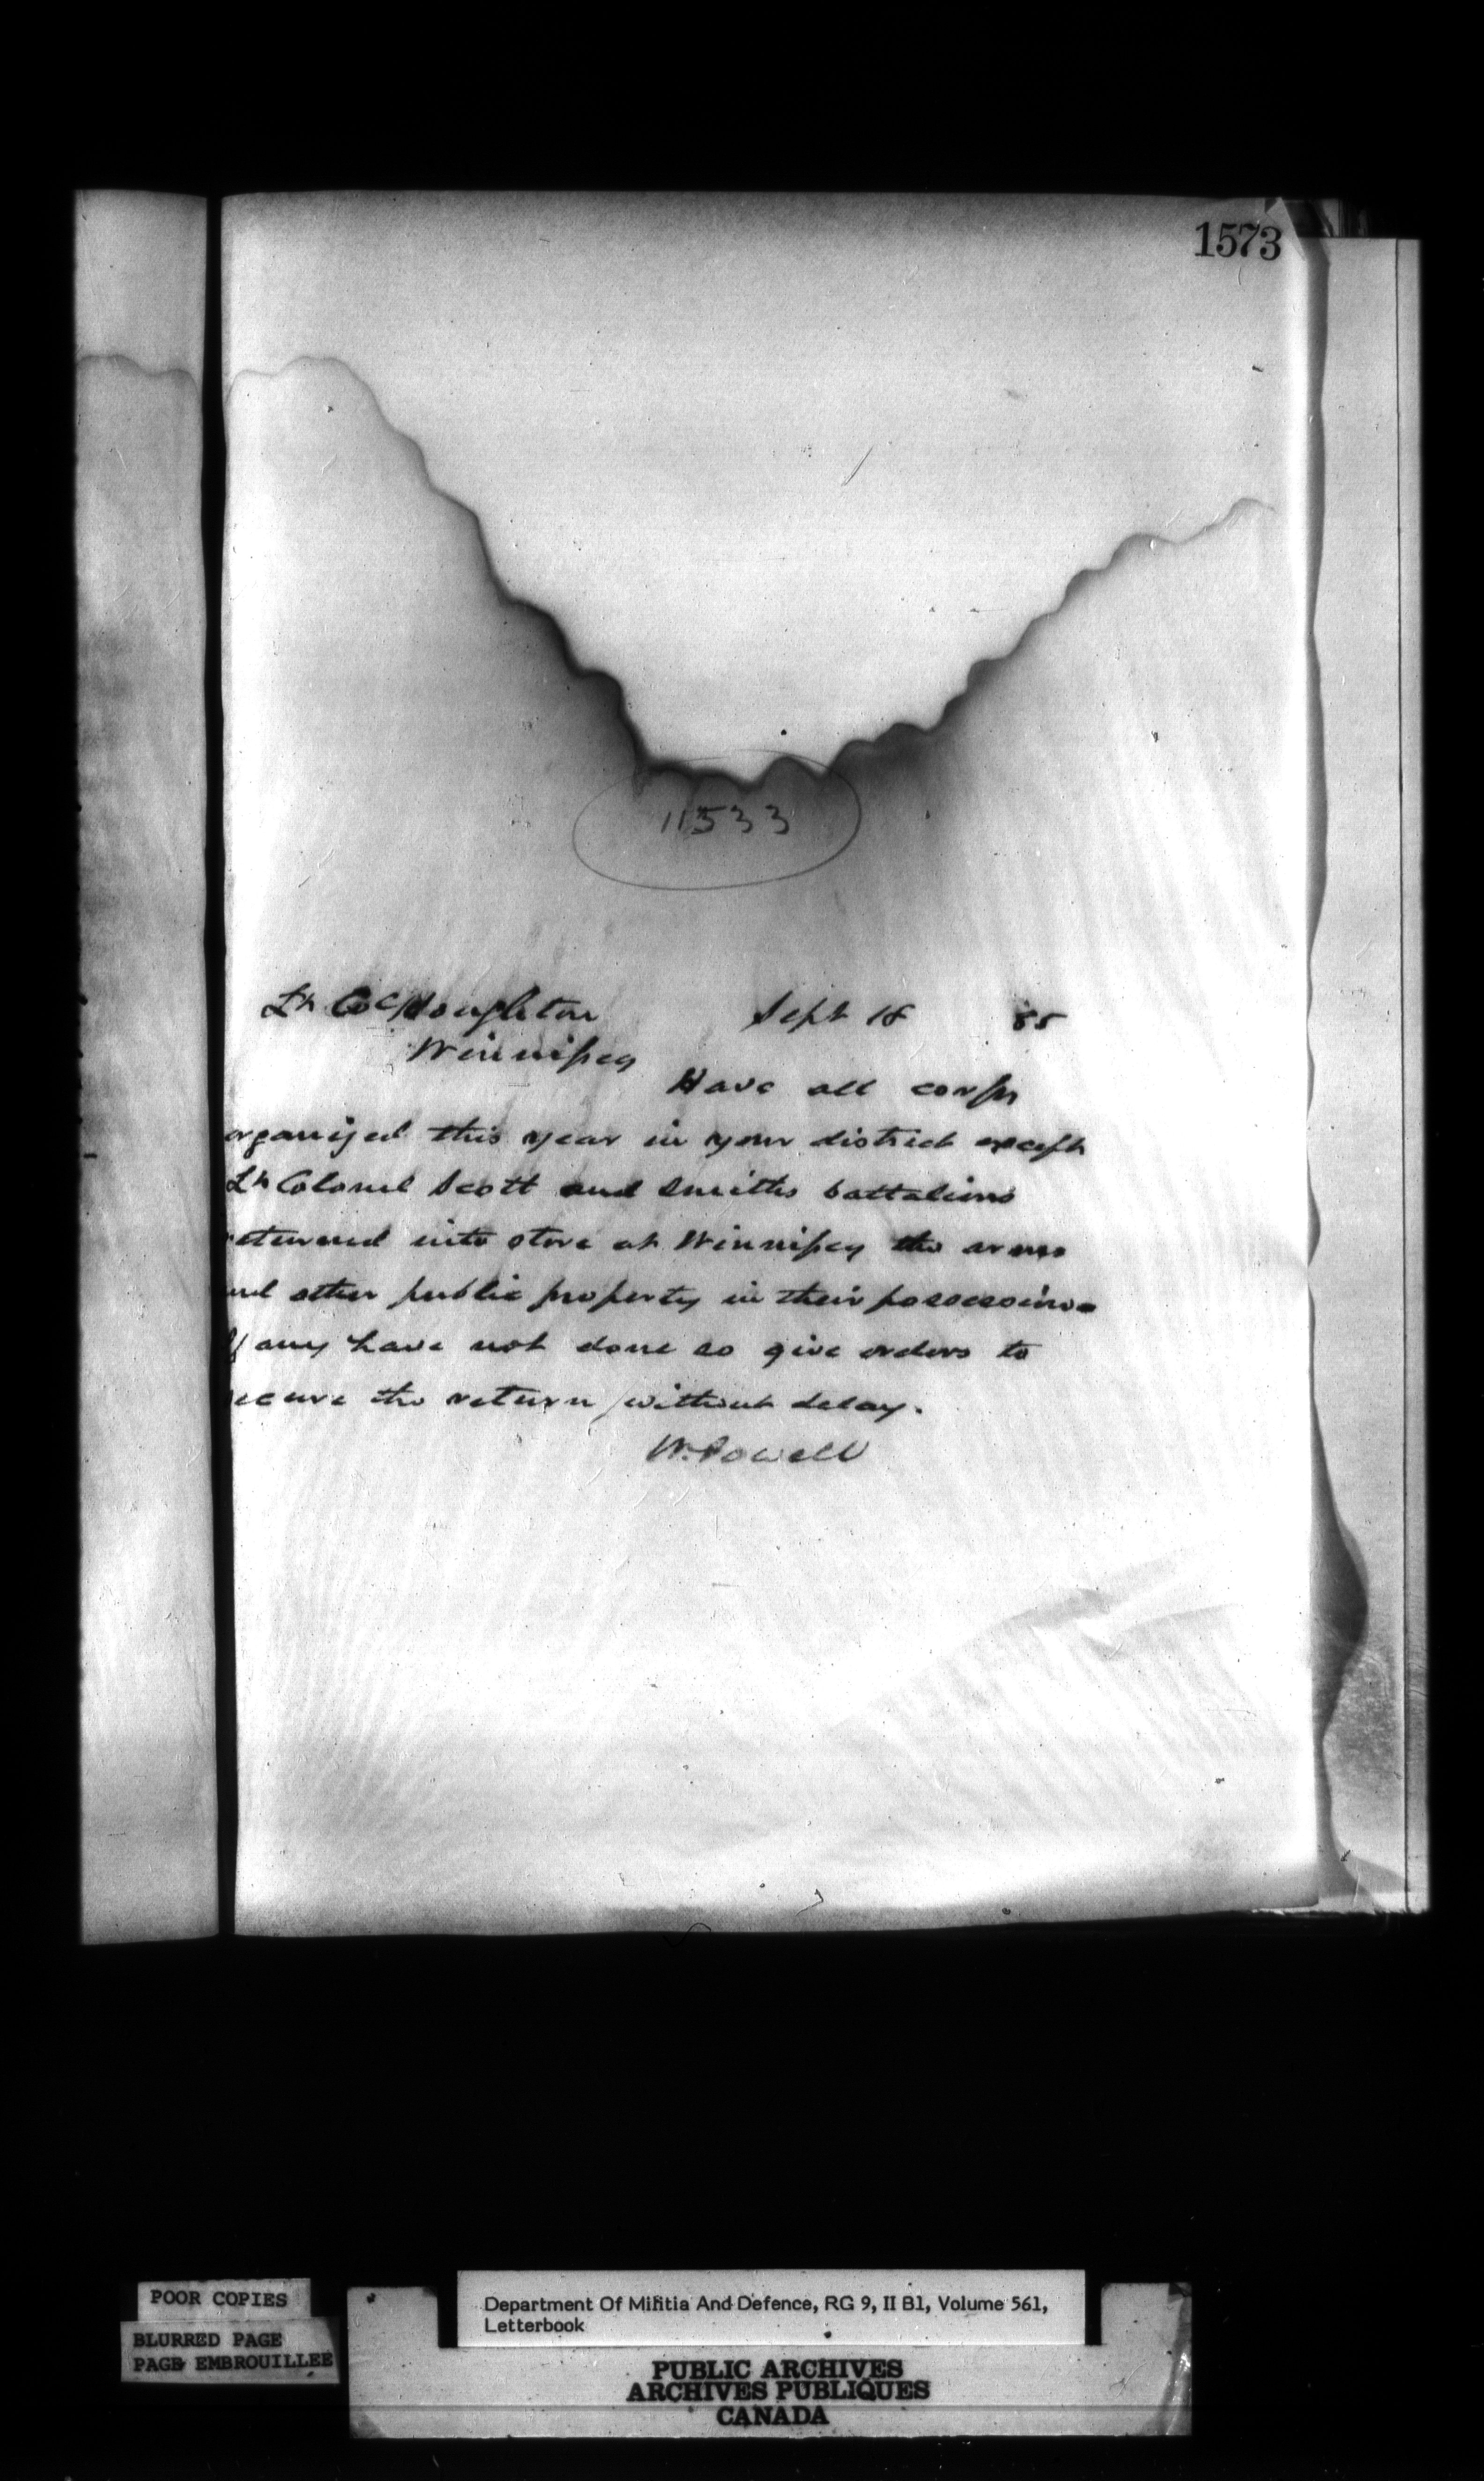 1573
11533
Lt Col Houghton Sept 18 85
Winnipeg
Have all corps
organized this year in your district except
Lt Colonel Scott and Smiths battalions
returned into store at Winnipeg the arms
and other public property in their possession
If any have not done so give orders to
secure the return without delay.
W. Powell
POOR COPIES
BLURRED PAGE
PAGE EMBROUILLEE
Department Of Militia And Defence, RG 9, II B1, Volume 561,
Letterbook
PUBLIC ARCHIVES
ARCHIVES PUBLIQUES
CANADA